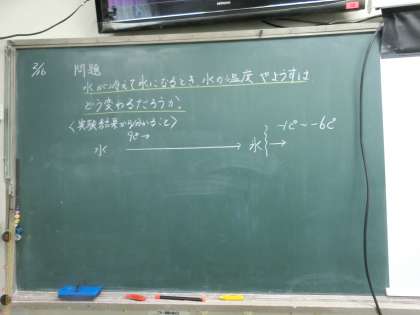 2/16 問題
水が冷えて氷になるとき 水の温度やようすは
どう変わるだろうか。
〈実験結果から分かること〉
水 9℃→ → 氷 → -1℃~-6℃